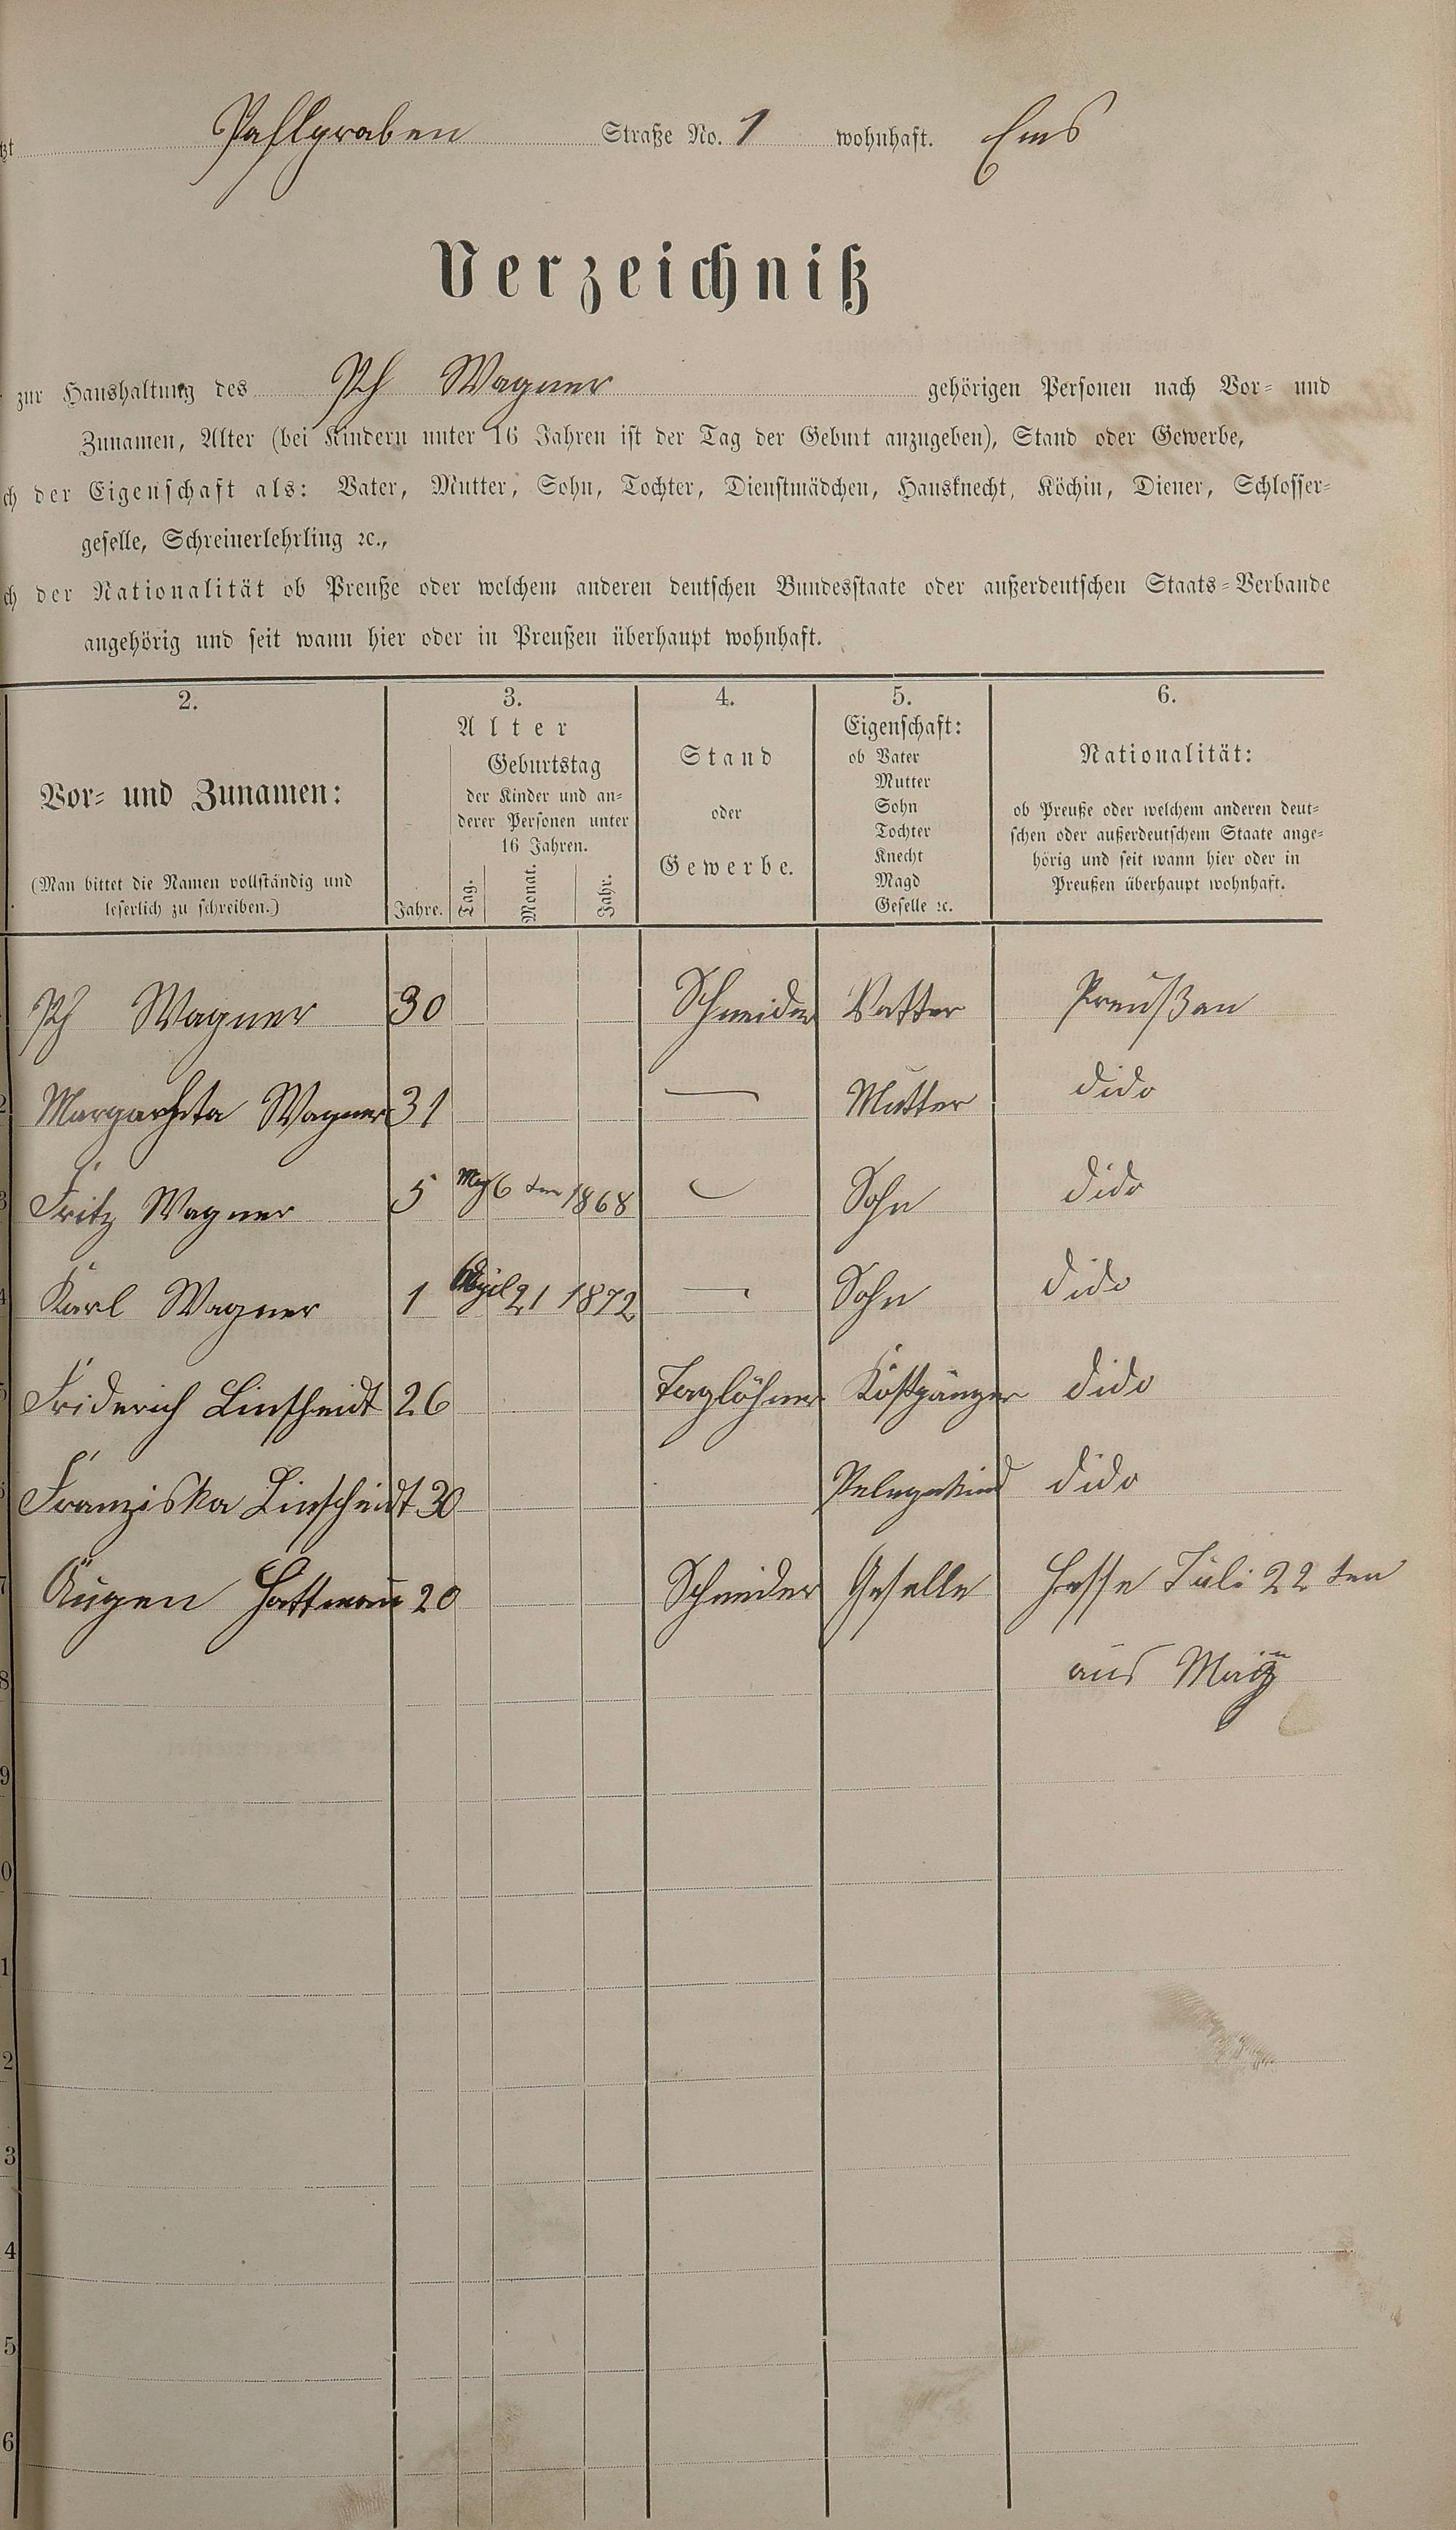 Pahlgraben Straße No. 1 wohnhaft. Ems
Verzeichniß
zur Haushaltung des Ph Wagner gehörigen Personen nach Vor- und
Zunamen, Alter (bei Kindern unter 16 Jahren ist der Tag der Geburt anzugeben), Stand oder Gewerbe,
der Eigenschaft als: Vater, Mutter, Sohn, Tochter, Dienstmädchen, Hausknecht, Köchin, Diener, Schlosser-
geselle, Schreinerlehrling ꝛc.,
der Nationalität ob Preuße oder welchem anderen deutschen Bundesstaate oder außerdeutschen Staats-Verbande
angehörig und seit wann hier oder in Preußen überhaupt wohnhaft.
2.
Vor- und Zunamen:
(Man bittet die Namen vollständig und
leserlich zu schreiben.)
3.
Alter
Geburtstag
der Kinder und an-
derer Personen unter
16 Jahren.
Jahre.
Tag.
Monat.
Jahr.
4.
Stand
oder
Gewerbe.
5.
Eigenschaft:
ob Vater
Mutter
Sohn
Tochter
Knecht
Magd
Geselle ꝛc.
6.
Nationalität:
ob Preuße oder welchem anderen deut-
schen oder außerdeutschem Staate ange-
hörig und seit wann hier oder in
Preußen überhaupt wohnhaft.
Ph Wagner 30 Schneider Vatter Preußen
2 Margarheta Wagner 31 — Mutter dido
3 Fritz Wagner 5 May 6 ten 1868 — Sohn dido
4 Karl Wagner 1 April 21 1872 — Sohn dido
5 Friderich Linscheidt 26 Taglöhner Kostgänger dido
Franziska Linscheidt 30 dido
7 Augen Hattmann 20 Schneider Geselle Hesse Juli 22 ten
8 aus Mainz
9
0
1
2
3
4
5
6